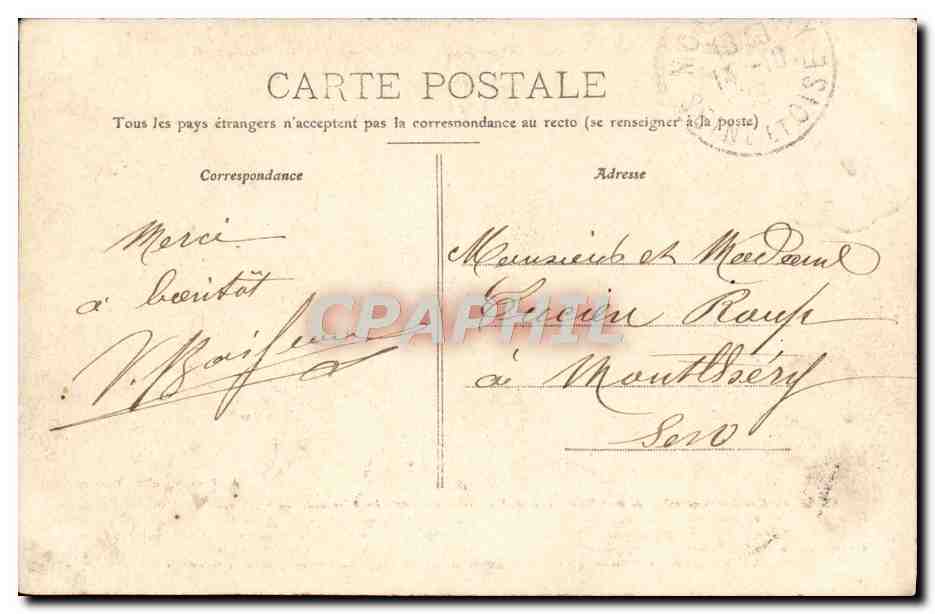 CARTE POSTALE
Tous les pays étrangers n'acceptent pas la correspondance au recto (se renseigner à la poste)
Correspondance
Adresse
Merci
à bientôt
Monsieur et Madame
Lucien Roup
à Montlhéry
CPAPHIL
SEINE-ET-OISE